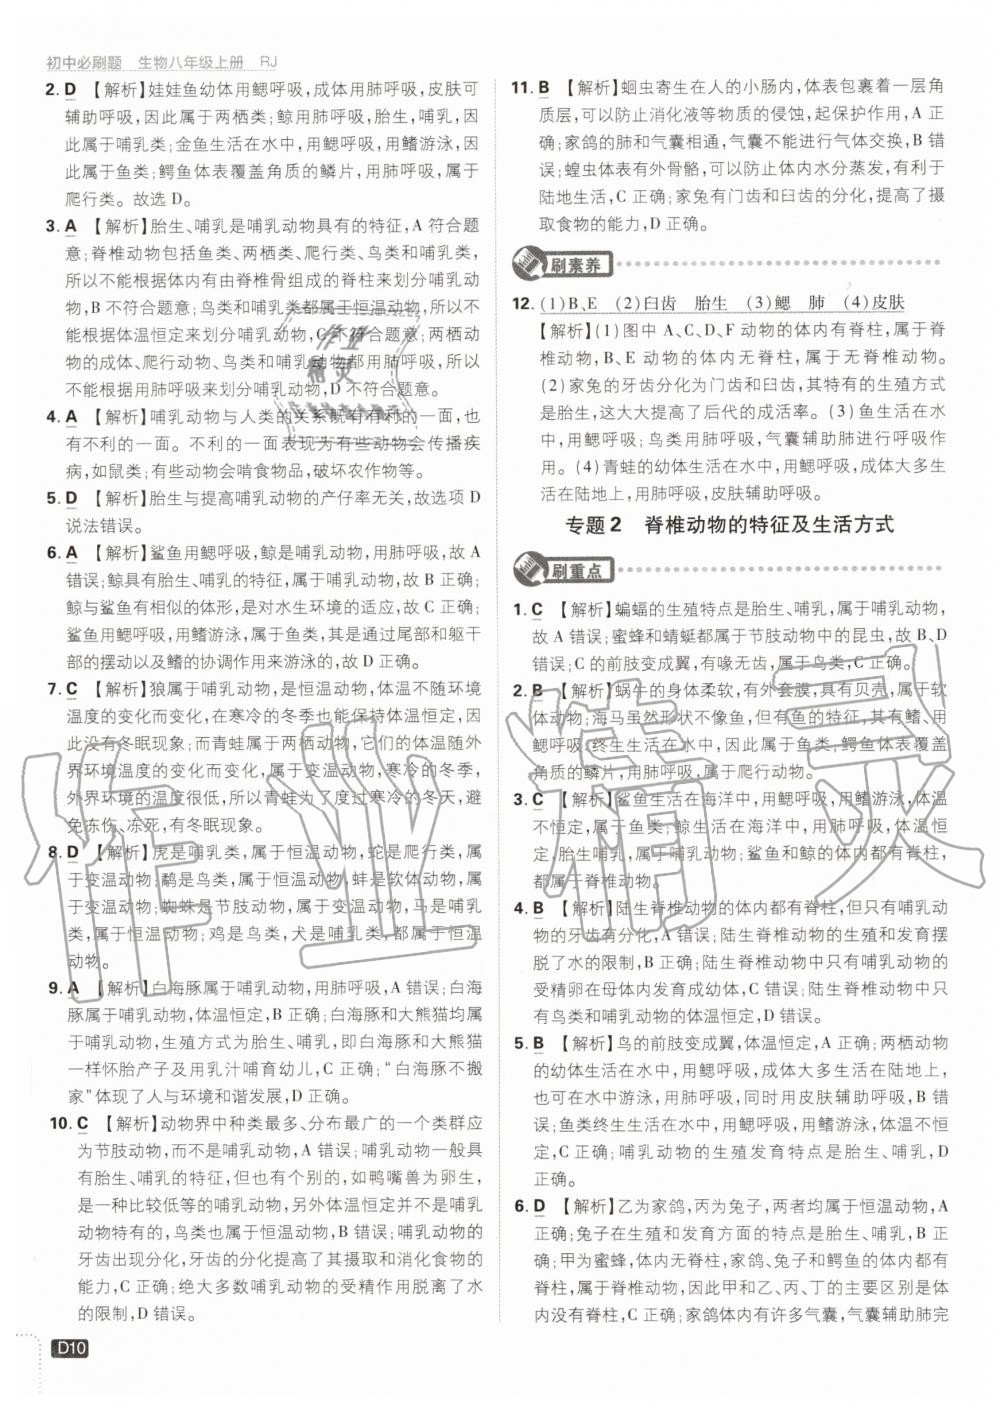 初中必刷题 生物八年级上册 RJ
2. D 【解析】娃娃鱼幼体用鳃呼吸,成体用肺呼吸,皮肤可
辅助呼吸,因此属于两栖类;鲸用肺呼吸,胎生,哺乳,因
此属于哺乳类;金鱼生活在水中,用鳃呼吸,用鳍游泳,因
此属于鱼类;鳄鱼体表覆盖角质的鳞片,用肺呼吸,属于
爬行类。故选 D。
3. A 【解析】胎生、哺乳是哺乳动物具有的特征,A 符合题
意;脊椎动物包括鱼类、两栖类、爬行类、鸟类和哺乳类,
所以不能根据体内有由脊椎骨组成的脊柱来划分哺乳动
物,B 不符合题意;鸟类和哺乳类都属于恒温动物,所以不
能根据体温恒定来划分哺乳动物,C 不符合题意;两栖动
物的成体、爬行动物、鸟类和哺乳动物都用肺呼吸,所以
不能根据用肺呼吸来划分哺乳动物,D 不符合题意。
4. A 【解析】哺乳动物与人类的关系既有有利的一面,也
有不利的一面。不利的一面表现为有些动物会传播疾
病,如鼠类;有些动物会啃食物品,破坏农作物等。
5. D 【解析】胎生与提高哺乳动物的产仔率无关,故选项 D
说法错误。
6. A 【解析】鲨鱼用鳃呼吸,鲸是哺乳动物,用肺呼吸,故 A
错误;鲸具有胎生、哺乳的特征,属于哺乳动物,故 B 正确;
鲸与鲨鱼有相似的体形,是对水生环境的适应,故 C 正确;
鲨鱼用鳃呼吸,用鳍游泳,属于鱼类,其通过尾部和躯干
部的摆动以及鳍的协调作用来游泳的,故 D 正确。
7. C 【解析】狼属于哺乳动物,是恒温动物,体温不随环境
温度的变化而变化,在寒冷的冬季也能保持体温恒定,因
此没有冬眠现象;而青蛙属于两栖动物,它们的体温随外
界环境温度的变化而变化,属于变温动物,寒冷的冬季,
外界环境的温度很低,所以青蛙为了度过寒冷的冬天,避
免冻伤、冻死,有冬眠现象。
8. D 【解析】虎是哺乳类,属于恒温动物,蛇是爬行类,属
于变温动物;鹅是鸟类,属于恒温动物,蚌是软体动物,属
于变温动物;蜘蛛是节肢动物,属于变温动物,马是哺乳
类,属于恒温动物;鸡是鸟类,犬是哺乳类,都属于恒温
动物。
9. A 【解析】白海豚属于哺乳动物,用肺呼吸,A 错误;白海
豚属于哺乳动物,体温恒定,B 正确;白海豚和大熊猫均属
于哺乳动物,生殖方式为胎生、哺乳,即白海豚和大熊猫
一样怀胎产子及用乳汁哺育幼儿,C 正确;“白海豚不搬
家”体现了人与环境和谐发展,D 正确。
10. C 【解析】动物界中种类最多、分布最广的一个类群应
为节肢动物,而不是哺乳动物,A 错误;哺乳动物一般具
有胎生、哺乳的特征,但也有个别的,如鸭嘴兽为卵生,
是一种比较低等的哺乳动物,另外体温恒定并不是哺乳
动物特有的,鸟类也属于恒温动物,B 错误;哺乳动物的
牙齿出现分化,牙齿的分化提高了其摄取和消化食物的
能力,C 正确;绝大多数哺乳动物的受精作用脱离了水
的限制,D 错误。
D10
11. B 【解析】蛔虫寄生在人的小肠内,体表包裹着一层角
质层,可以防止消化液等物质的侵蚀,起保护作用,A 正
确;家鸽的肺和气囊相通,气囊不能进行气体交换,B 错
误;蝗虫体表有外骨骼,可以防止体内水分蒸发,有利于
陆地生活,C 正确;家兔有门齿和臼齿的分化,提高了摄
取食物的能力,D 正确。
刷素养
12. (1)B、E (2)臼齿 胎生 (3)鳃 肺 (4)皮肤
【解析】(1)图中 A、C、D、F 动物的体内有脊柱,属于脊
椎动物,B、E 动物的体内无脊柱,属于无脊椎动物。
(2)家兔的牙齿分化为门齿和臼齿,其特有的生殖方式
是胎生,这大大提高了后代的成活率。(3)鱼生活在水
中,用鳃呼吸;鸟类用肺呼吸,气囊辅助肺进行呼吸作
用。(4)青蛙的幼体生活在水中,用鳃呼吸,成体大多生
活在陆地上,用肺呼吸,皮肤辅助呼吸。
专题 2 脊椎动物的特征及生活方式
刷重点
1. C 【解析】蝙蝠的生殖特点是胎生、哺乳,属于哺乳动物,
故 A 错误;蜜蜂和蜻蜓都属于节肢动物中的昆虫,故 B、D
错误;C 的前肢变成翼,有喙无齿,属于鸟类,C 正确。
2. B 【解析】蜗牛的身体柔软,有外套膜,具有贝壳,属于软
体动物;海马虽然形状不像鱼,但有鱼的特征,其有鳍、用
鳃呼吸、终生生活在水中,因此属于鱼类;鳄鱼体表覆盖
角质的鳞片,用肺呼吸,属于爬行动物。
3. C 【解析】鲨鱼生活在海洋中,用鳃呼吸,用鳍游泳,体温
不恒定,属于鱼类;鲸生活在海洋中,用肺呼吸,体温恒
定,胎生哺乳,属于哺乳动物;鲨鱼和鲸的体内都有脊柱,
都属于脊椎动物。
4. B 【解析】陆生脊椎动物的体内都有脊柱,但只有哺乳动
物的牙齿有分化,A 错误;陆生脊椎动物的生殖和发育摆
脱了水的限制,B 正确;陆生脊椎动物中只有哺乳动物的
受精卵在母体内发育成幼体,C 错误;陆生脊椎动物中只
有鸟类和哺乳动物的体温恒定,D 错误。
5. B 【解析】鸟的前肢变成翼,体温恒定,A 正确;两栖动物
的幼体生活在水中,用鳃呼吸,成体大多生活在陆地上,
也可在水中游泳,用肺呼吸,同时用皮肤辅助呼吸,B 错
误;鱼类终生生活在水中,用鳃呼吸,用鳍游泳,体温不恒
定,C 正确;哺乳动物的生殖发育特点是胎生、哺乳,D
正确。
6. D 【解析】乙为家鸽,丙为兔子,两者均属于恒温动物,A
正确;兔子在生殖和发育方面的特点是胎生、哺乳,B 正
确;甲为蜜蜂,体内无脊柱,家鸽、兔子和鳄鱼的体内都有
脊柱,属于脊椎动物,因此甲和乙、丙、丁的主要区别是体
内没有脊柱,C 正确;家鸽体内有许多气囊,气囊辅助肺完
作业精灵
作业
精灵